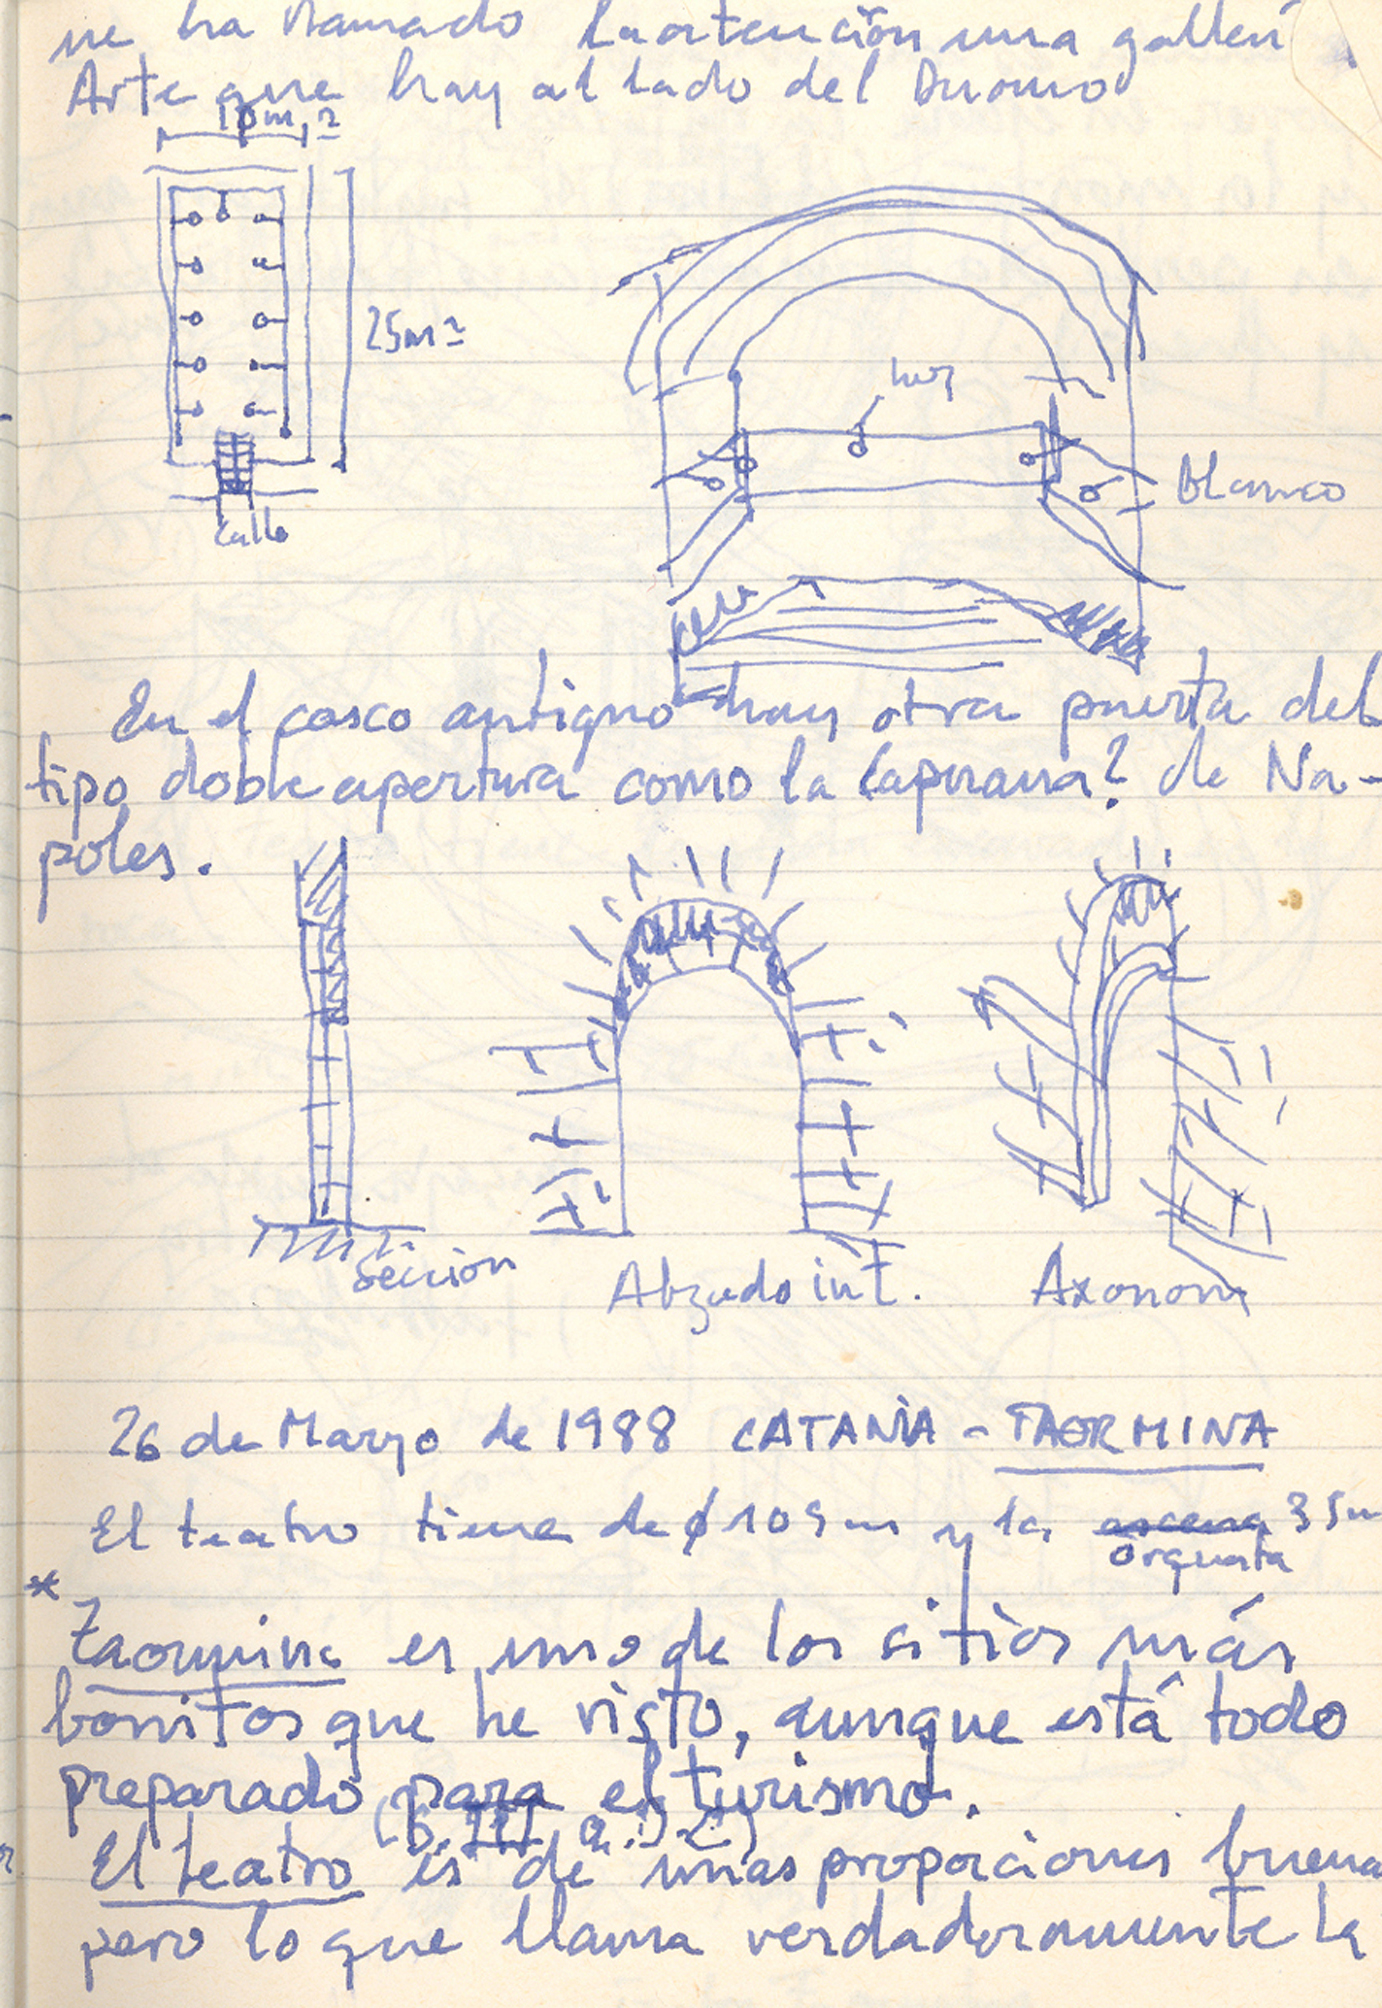 me ha llamado la atención una galleri
Arte que hay al lado del Duomo
10m.
25m
luz
Blanco
Calle
En el casco antiguo hay otra puerta del
tipo doble apertura como la Capuana? de Na-
poles.
Sección
Alzado int.
Axonom
26 de Marzo de 1988 CATANIA - TAORMINA
El teatro tiene de ø 109 m y la escena 35m
orquesta
* Taormina es uno de los sitios más
bonitos que he visto, aunque está todo
preparado para el turismo.
(S. III a. J.C)
El teatro es de unas proporciones buena
pero lo que llama verdaderamente la